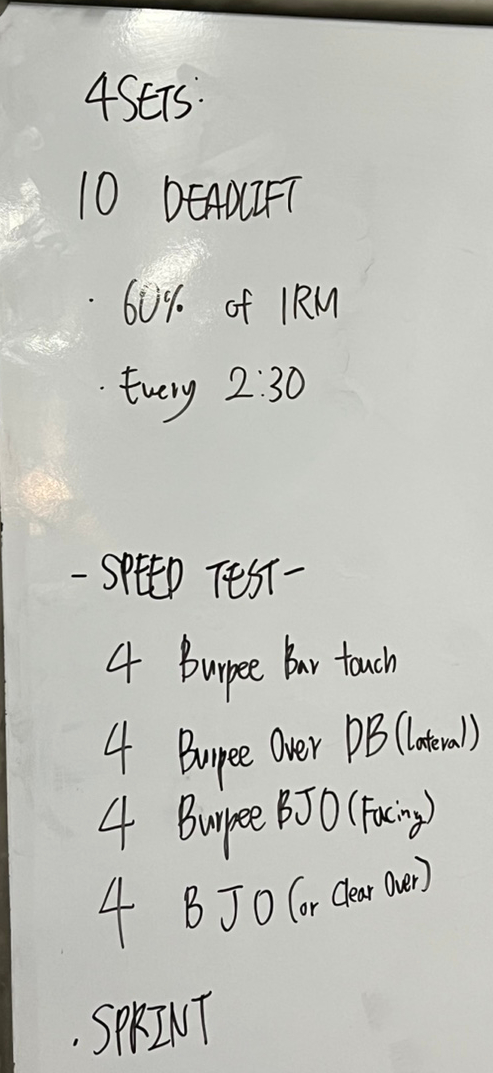 4 SETS:
10 DEADLIFT
· 60% of 1RM
· Every 2:30
- SPEED TEST -
4 Burpee Bar touch
4 Burpee Over DB (lateral)
4 Burpee BJO (Facing)
4 BJO (or Clear Over)
. SPRINT